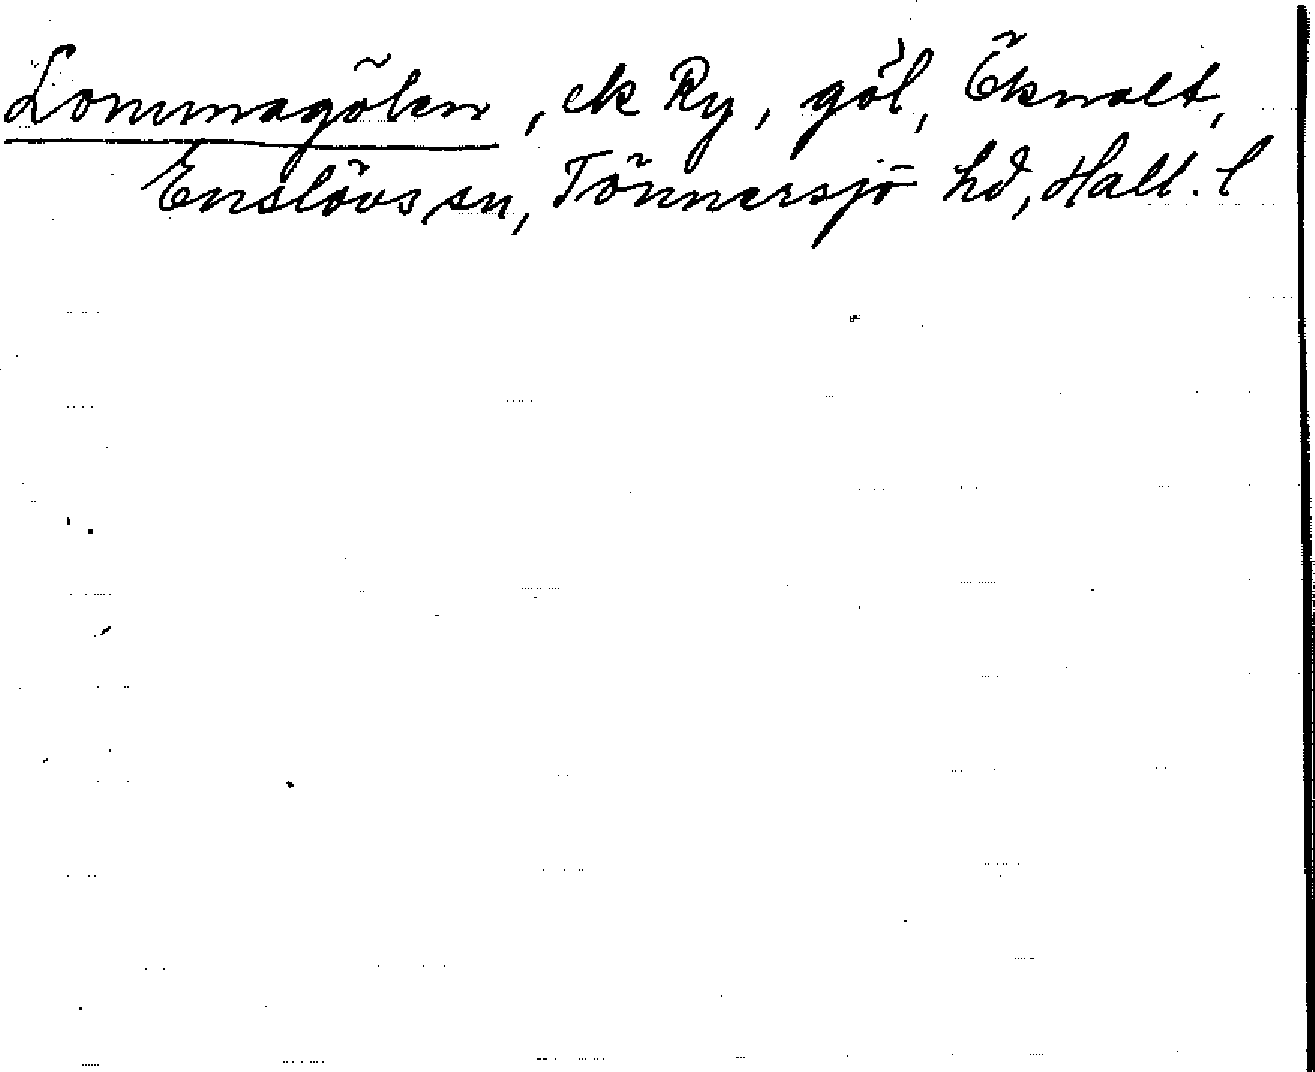 Lommagölen, ek Ry, göl, Öknalt,
Enslövs sn, Tönnersjö hd, Hall. l